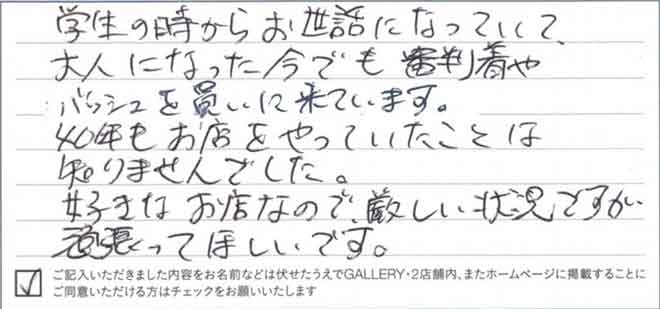 学生の時からお世話になっていて、
大人になった今でも審判着や
バッシュを買いに来ています。
40年もお店をやっていたことは
知りませんでした。
好きなお店なので、厳しい状況ですが
頑張ってほしいです。
ご記入いただきました内容をお名前などは伏せたうえでGALLERY・2店舗内、またホームページに掲載することに
ご同意いただける方はチェックをお願いいたします